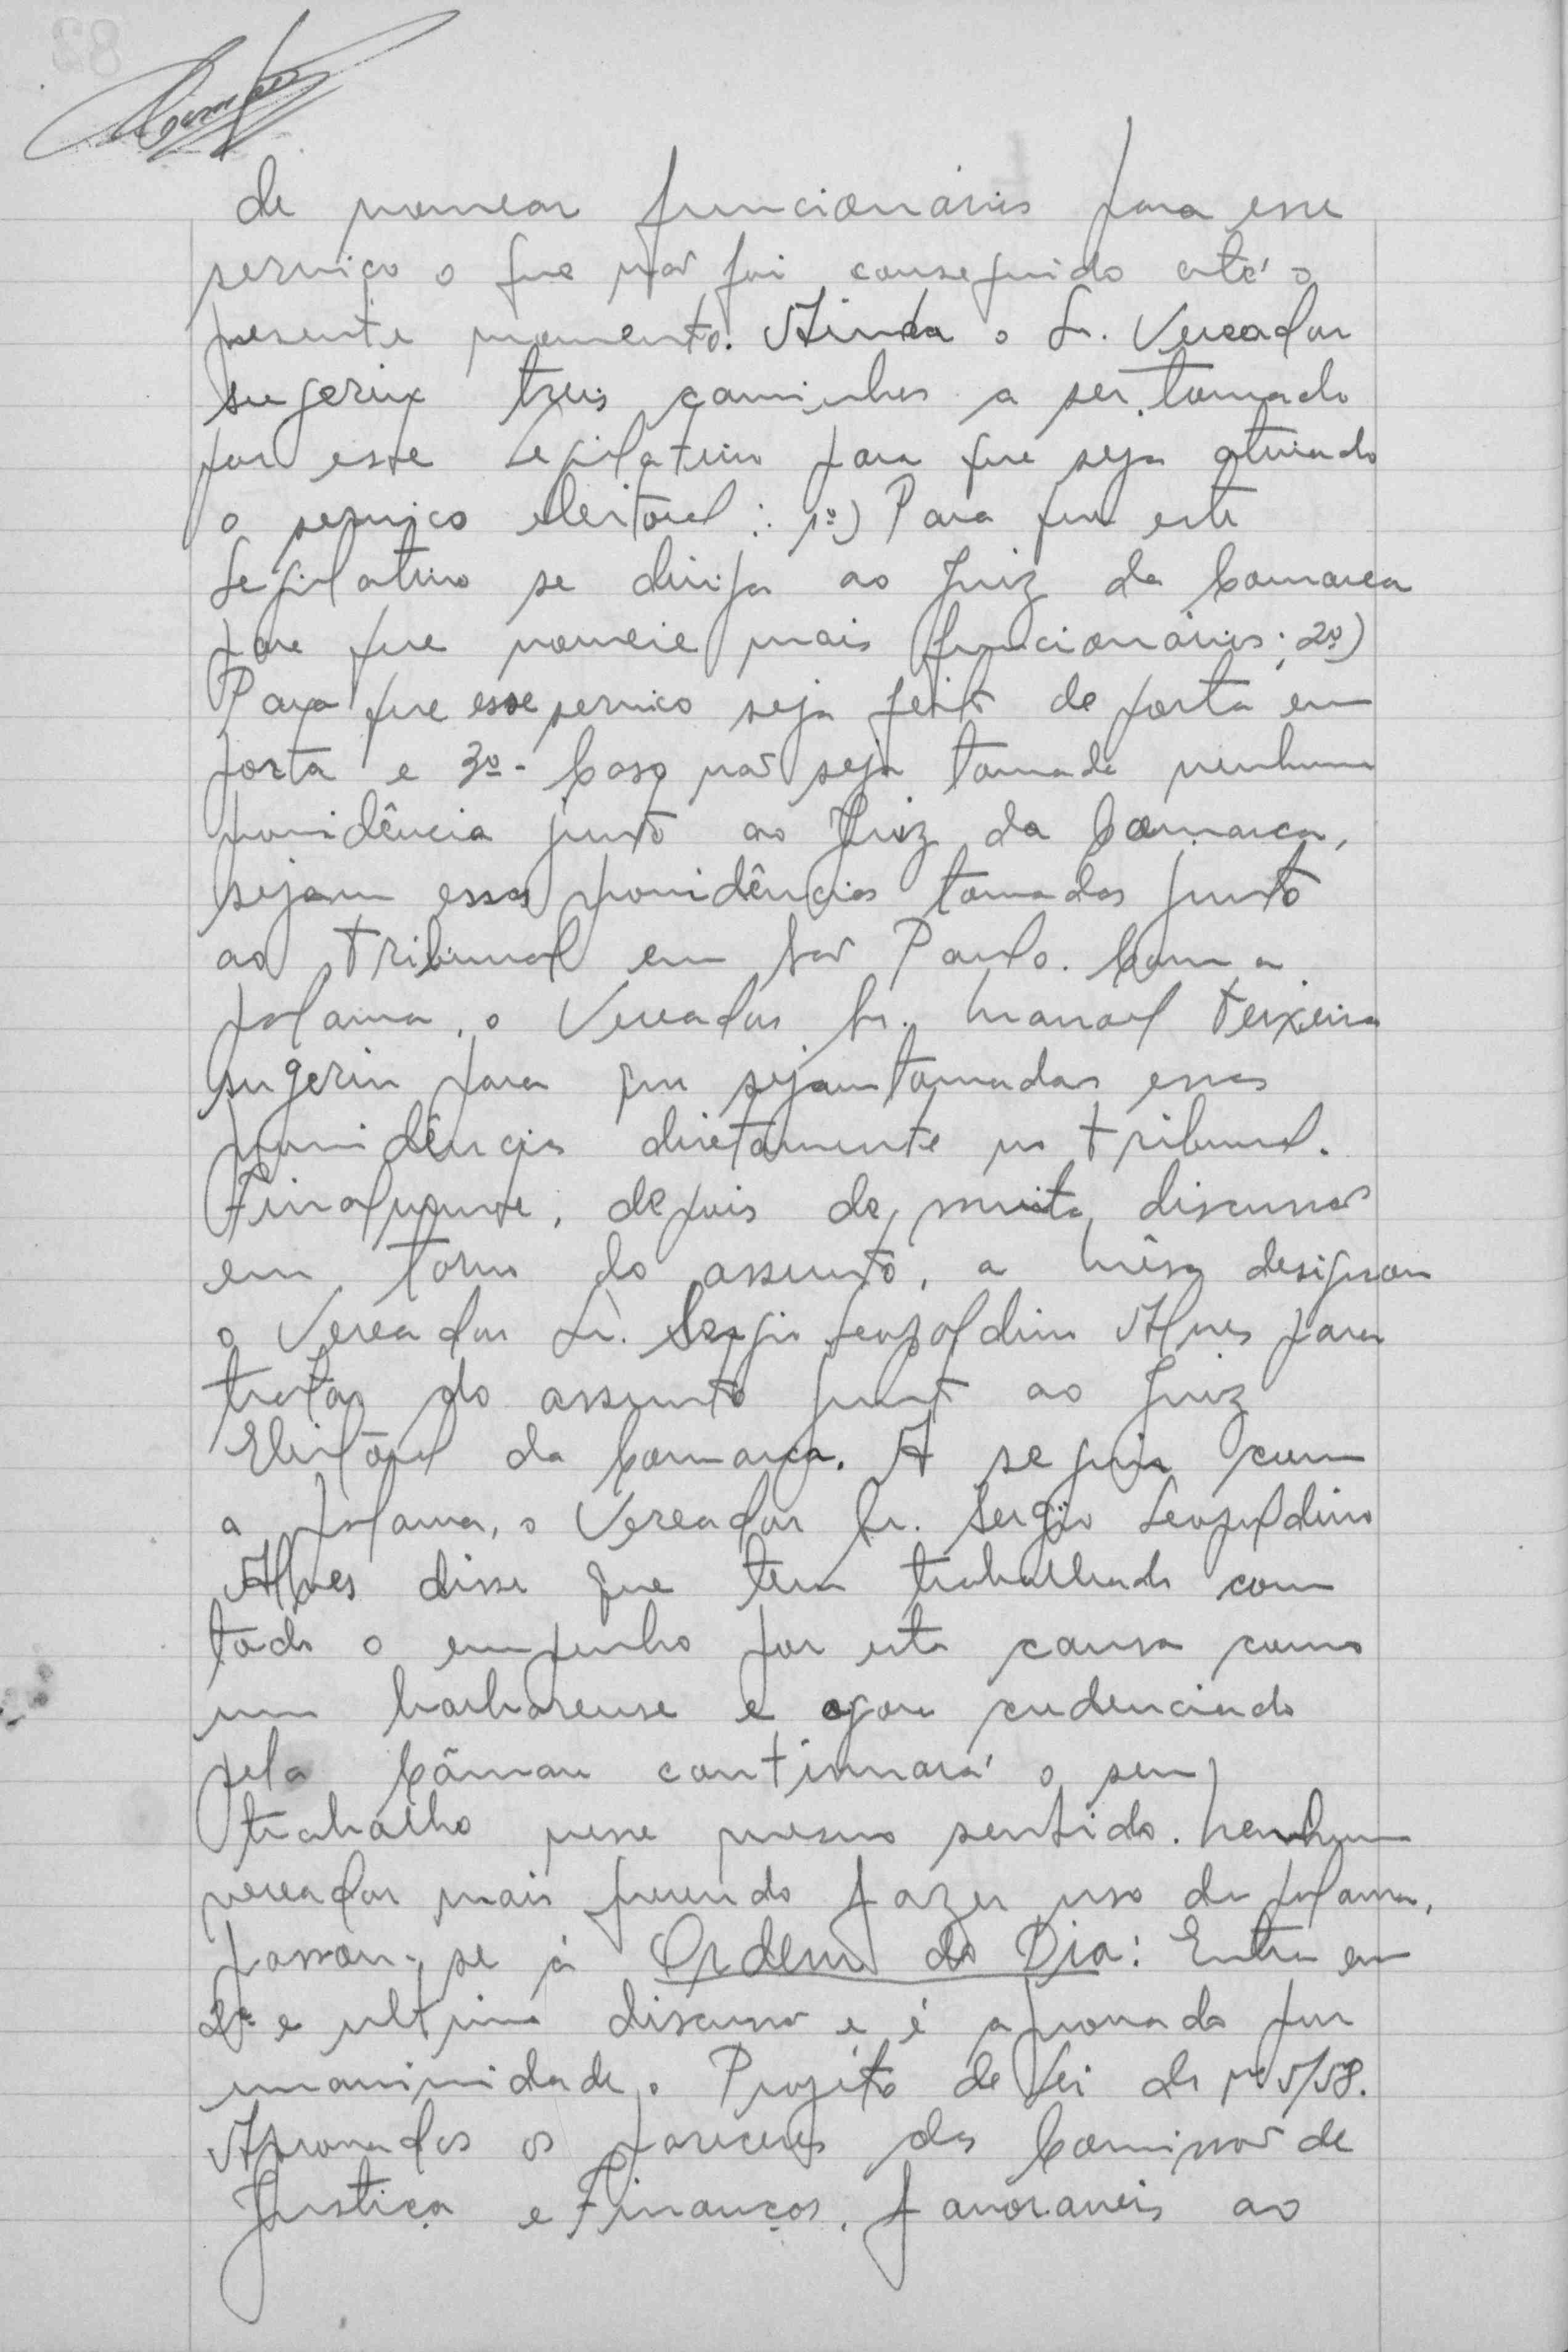 de nomear funcionários para esse
serviço o que não foi conseguido até o
presente momento. Ainda o Sr. Vereador
sugeriu treis caminhos a ser tomado
por esse Legislativo para que seja ativado
o serviço eleitoral: 1º) Para que este
Legislativo se dirija ao Juiz da Comarca
para que nomeie mais funcionários; 2º)
Para que esse serviço seja feito de porta em
porta e 3º - Caso não seja tomada nenhuma
providência junto ao Juiz da Comarca,
sejam essas providências tomadas junto
ao Tribunal em São Paulo. Com a
palavra, o Vereador Sr. Manoel Teixeira
sugeriu para que sejam tomadas essas
providências diretamente no Tribunal.
Finalmente, depois de muita discussão
em torno do assunto, a Mêsa designou
o Vereador Sr. Sergio Leopoldino Alves para
tratar do assunto junto ao Juiz
Eleitôral da Comarca. A seguir com
a palavra, o Vereador Sr. Sergio Leopoldino
Alves disse que tem trabalhado com
todo o empenho por esta causa como
um barbarense e agora credenciado
pela Câmara continuará o seu
trabalho nesse mesmo sentido. Nenhum
vereador mais querendo fazer uso da palavra,
passou-se à Ordem do Dia: Entra em
2ª e ultima discussão e é aprovado por
unanimidade o Projéto de Lei de nº 5/58.
Aprovados os pareceres das Comissão de
Justiça e Finanças, favoraveis ao